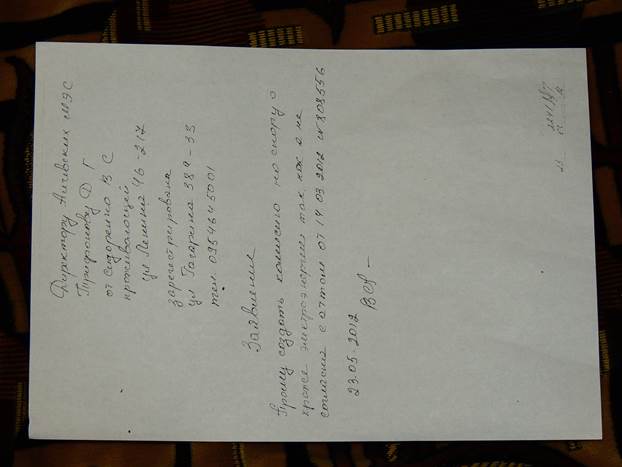 Директору Алчевских МЭС
Трифонову Д Г
от Сидоренко В С
проживающей
ул Ленина 46-217
зарегестрирована
ул Гагарина 389-33
тел. 0954645001
Заявление
Прошу создать комисию по спору о
краже электроэнергии так как я не
согласна с актом от 14.03.2012 № 808556
23.05-2012